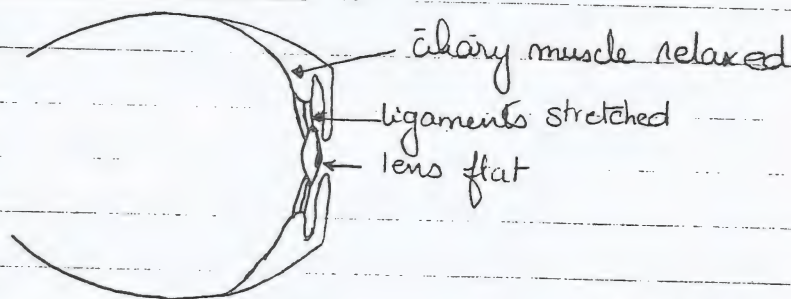 ciliary muscle relaxed
ligaments stretched
lens flat